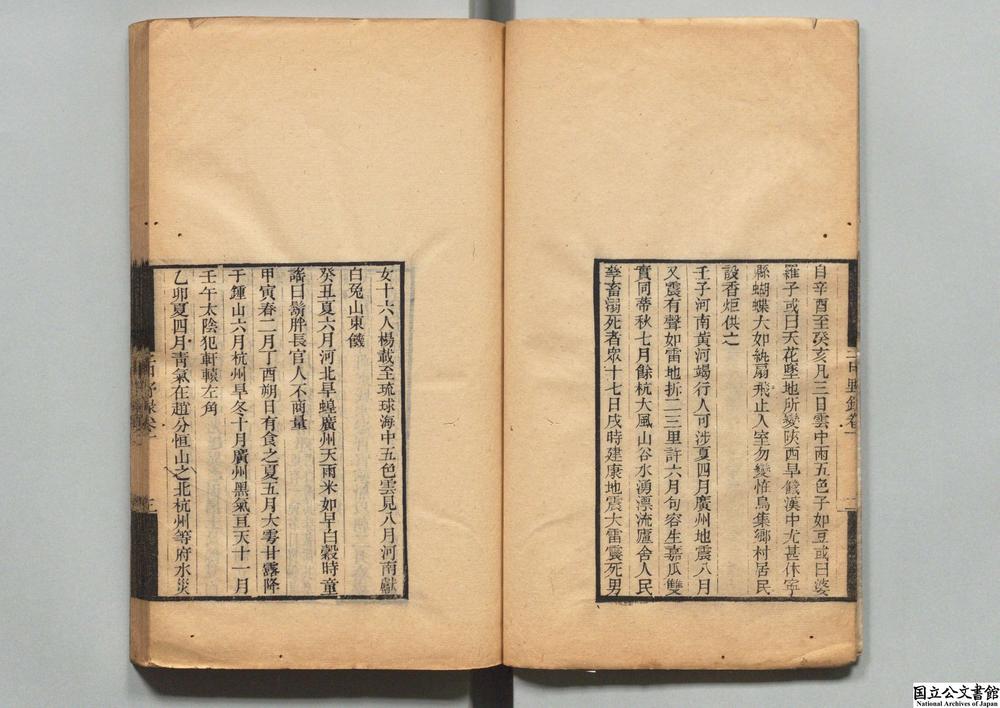 自辛酉至癸亥凡三日雲中雨五色子如豆或曰婆
羅子或曰天花墜地所變陝西旱饑漢中尤甚休寧
縣蝴蝶大如紈扇飛止人室勿變惟鳥集鄉村居民
設香炬供之
壬子河南黃河竭行人可涉夏四月廣州地震八月
又震有聲如雷地拆二三里許六月句容生嘉瓜雙
實同蒂秋七月餘杭大風山谷水湧漂流廬舍人民
孳畜溺死者眾十七日戌時建康地震大雷震死男
女十六人楊載至琉球海中五色雲見八月河南獻
白兔山東饑
癸丑夏六月河北旱蝗廣州天雨米如早白穀時童
謠曰鬍胖長官人不商量
甲寅春二月丁酉朔日有食之夏五月大雩甘露降
于鍾山六月杭州旱冬十月廣州黑氣亘天十一月
壬午太陰犯軒轅左角
乙卯夏四月青氣在趙分恒山之北杭州等府水災
二申野錄卷一
二
三
国立公文書館
National Archives of Japan